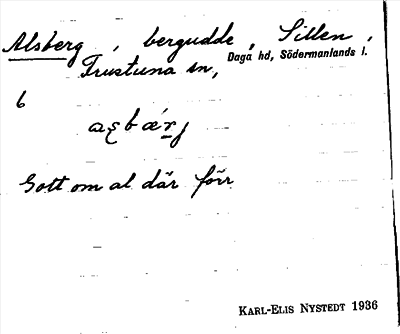 Alsberg, bergudde, Sillen,
Frustuna sn, Daga hd, Södermanlands l.
6
Gott om al där förr
KARL-ELIS NYSTEDT 1936